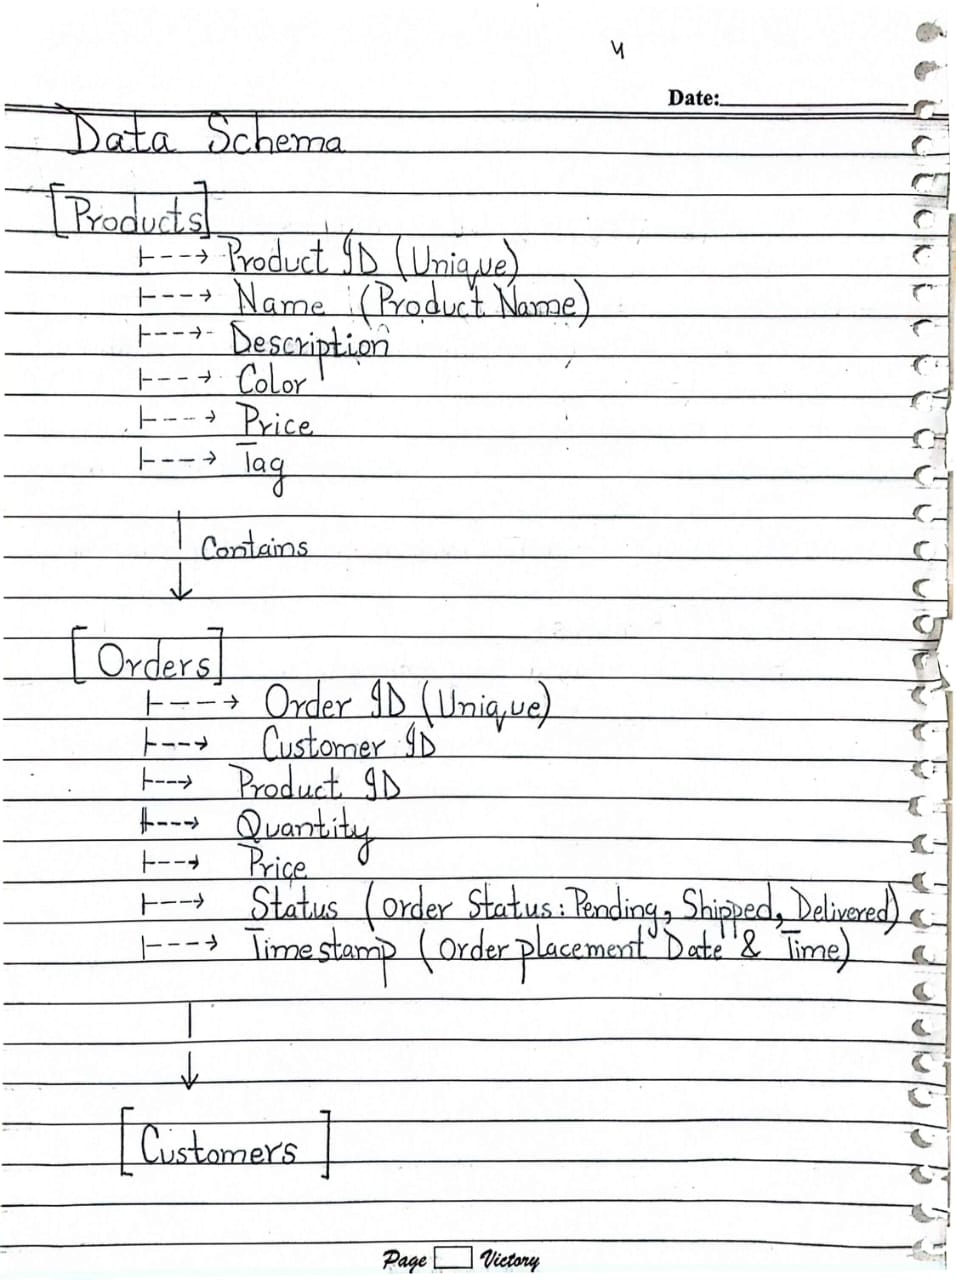 4
Date:
Data Schema
[Products]
|---→ Product ID (Unique)
|---→ Name (Product Name)
|---→ Description
|---→ Color
|---→ Price
|---→ Tag
Contains
[Orders]
|---→ Order ID (Unique)
|---→ Customer ID
|---→ Product ID
|---→ Quantity
|---→ Price
|---→ Status (Order Status: Pending, Shipped, Delivered)
|---→ Timestamp (Order placement Date & Time)
[Customers]
Page Victory